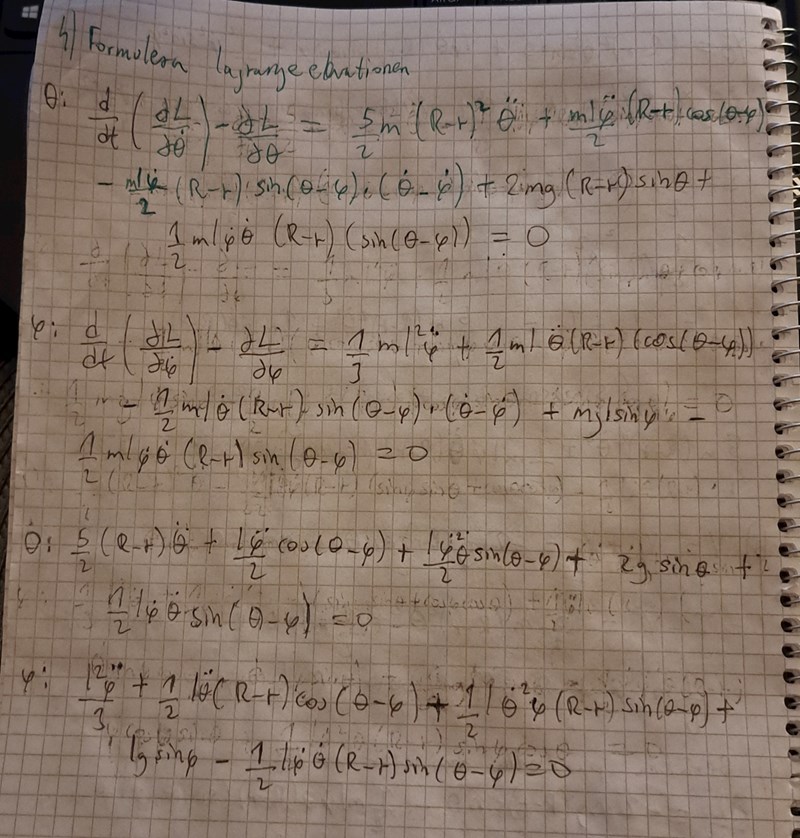 4) Formulera lagrangeekvationen
θ: d/dt (∂L/∂θ̇) - ∂L/∂θ = 5/2 m (R-r)² θ̈ + mlφ̈/2 (R-r) cos(θ-φ)
- mlφ̇/2 (R-r) sin(θ-φ)·(θ̇-φ̇) + 2mg(R-r) sinθ +
1/2 mlφ̇θ̇ (R-r) (sin(θ-φ)) = 0
φ: d/dt (∂L/∂φ̇) - ∂L/∂φ = 1/3 ml²φ̈ + 1/2 ml θ̈(R-r) (cos(θ-φ))
- 1/2 mlθ̇(R-r) sin(θ-φ)·(θ̇-φ̇) + mglsinφ = 0
1/2 mlφ̇θ̇ (R-r) sin(θ-φ) = 0
θ: 5/2 (R-r)θ̈ + lφ̈/2 cos(θ-φ) + lφ̇²θ̇/2 sin(θ-φ) + 2g sinθ +
1/2 lφ̇θ̇ sin(θ-φ) = 0
φ: l²φ̈/3 + 1/2 lθ̈(R-r) cos(θ-φ) + 1/2 l θ̇²φ̇ (R-r) sin(θ-φ) +
lg sinφ - 1/2 lφ̇θ̇(R-r) sin(θ-φ) = 0